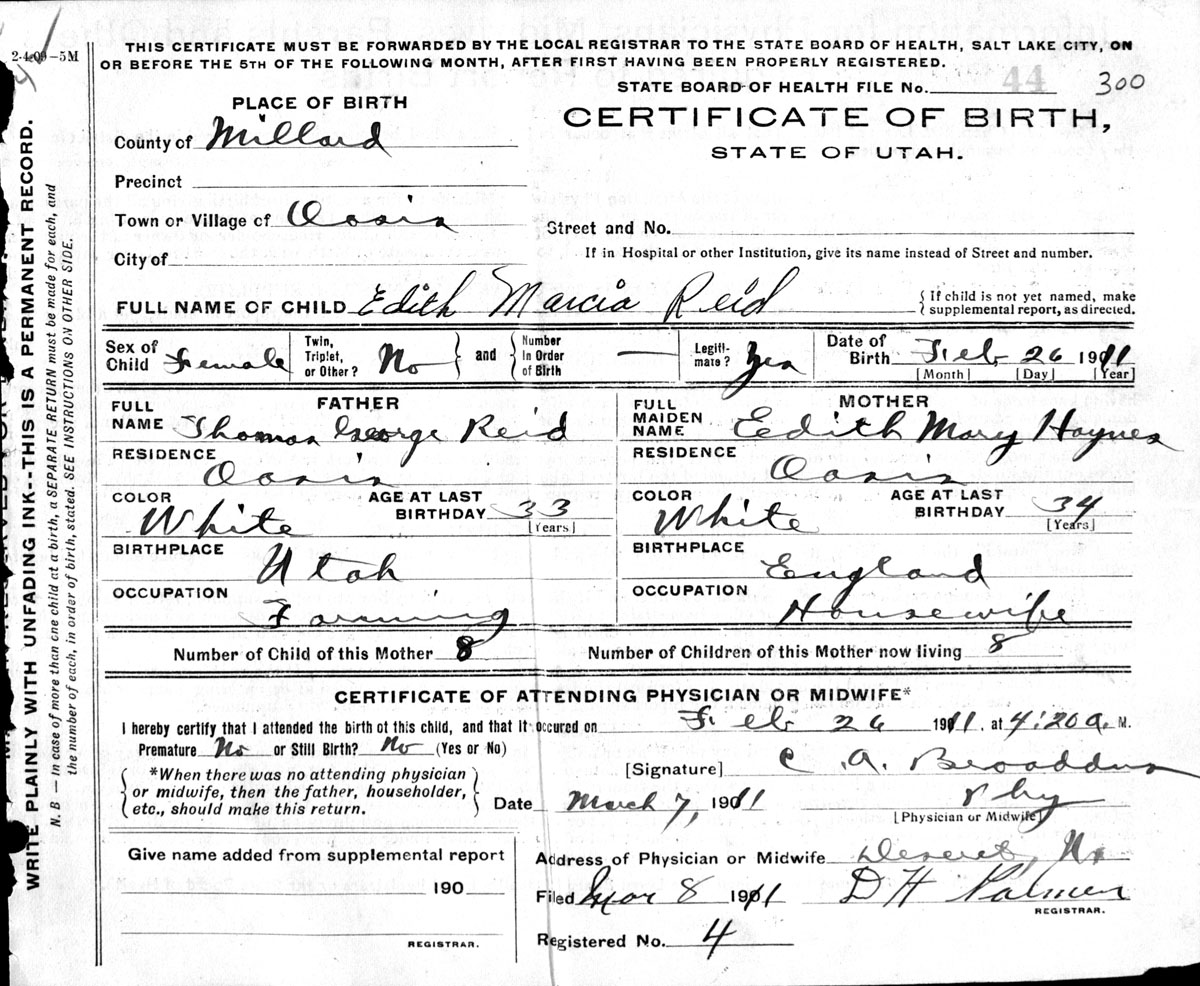 2-4-09-5M
THIS CERTIFICATE MUST BE FORWARDED BY THE LOCAL REGISTRAR TO THE STATE BOARD OF HEALTH, SALT LAKE CITY, ON
OR BEFORE THE 5TH OF THE FOLLOWING MONTH, AFTER FIRST HAVING BEEN PROPERLY REGISTERED.
STATE BOARD OF HEALTH FILE No. 44 300
PLACE OF BIRTH
CERTIFICATE OF BIRTH,
STATE OF UTAH.
County of Millard
Precinct
Town or Village of Oasis
Street and No.
City of
If in Hospital or other Institution, give its name instead of Street and number.
FULL NAME OF CHILD Edith Marcia Reid
{ If child is not yet named, make
supplemental report, as directed.
Sex of Child Female
Twin, Triplet, or Other? No } and { Number in Order of Birth —
Legiti-mate? Yes
Date of Birth Feb 26 1911
[Month] [Day] [Year]
FATHER
FULL NAME Thomas George Reid
RESIDENCE Oasis
COLOR White
AGE AT LAST BIRTHDAY 33 [Years]
BIRTHPLACE Utah
OCCUPATION Farming
MOTHER
FULL MAIDEN NAME Eedith Mary Haynes
RESIDENCE Oasis
COLOR White
AGE AT LAST BIRTHDAY 34 [Years]
BIRTHPLACE England
OCCUPATION Housewife
Number of Child of this Mother 8
Number of Children of this Mother now living 8
CERTIFICATE OF ATTENDING PHYSICIAN OR MIDWIFE*
I hereby certify that I attended the birth of this child, and that it occured on Feb 26 1911, at 4:20 a. M.
Premature No or Still Birth? No (Yes or No)
{ *When there was no attending physician
or midwife, then the father, householder,
etc., should make this return. }
[Signature] C. A. Broaddus
Date March 7, 1911
Phy
[Physician or Midwife]
Give name added from supplemental report
190
REGISTRAR.
Address of Physician or Midwife Deseret,
Filed Mar 8 1911 D H Palmer
REGISTRAR.
Registered No. 4
WRITE PLAINLY WITH UNFADING INK--THIS IS A PERMANENT RECORD.
N. B — In case of more than one child at a birth, a SEPARATE RETURN must be made for each, and
the number of each, in order of birth, stated. SEE INSTRUCTIONS ON OTHER SIDE.